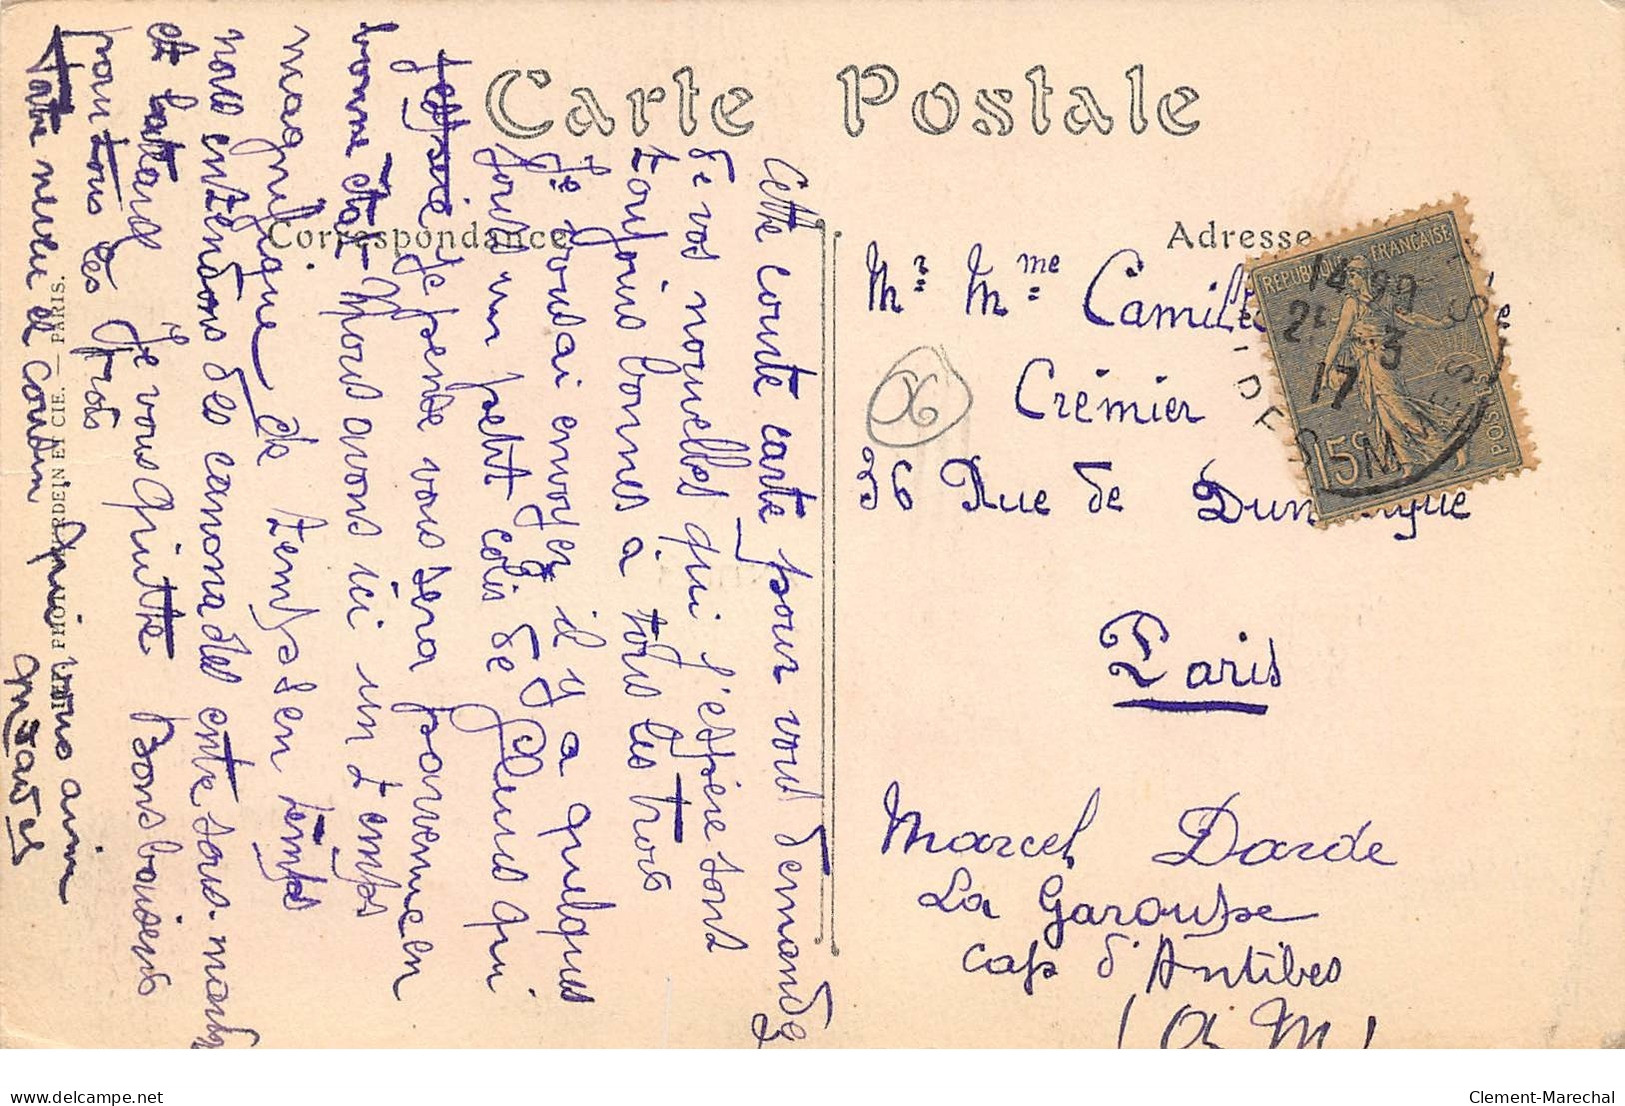 Carte Postale
Correspondance
Adresse
Cette courte carte pour vous demander
de vos nouvelles qui j'espère sont
toujours bonnes à tous les trois
Je vous ai envoyer il y a quelques
jours un petit colis de fleurs qui
j'espère je pense vous sera parvenu en
bonne état Nous avons ici un temps
magnifique de temps en temps
nous entendons des canonades entre sous-marin
et bateau Je vous quitte Bons baisers
pour tous les trois
Votre neveu et cousin qui vous aime
PARIS.
Mr Mme Camille
Crémier
36 Rue de Dunkerque
Paris
06
RÉPUBLIQUE FRANÇAISE
15c
POSTES
14 30
3
17
Marcel Darde
La Garoupe
Cap d'Antibes
(A M)
Clement-Marechal